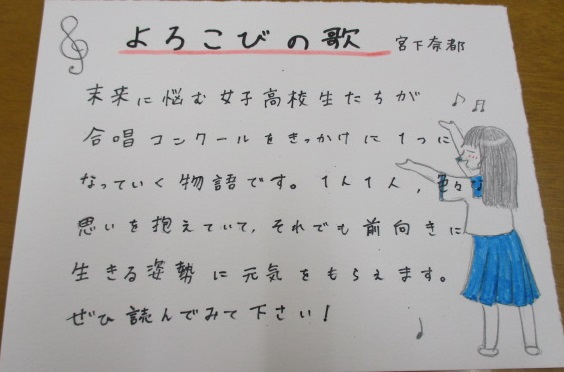 よろこびの歌 宮下奈都
未来に悩む女子高校生たちが
合唱コンクールをきっかけに1つに
なっていく物語です。1人1人,色々な
思いを抱えていて,それでも前向きに
生きる姿勢に元気をもらえます。
ぜひ読んでみて下さい!